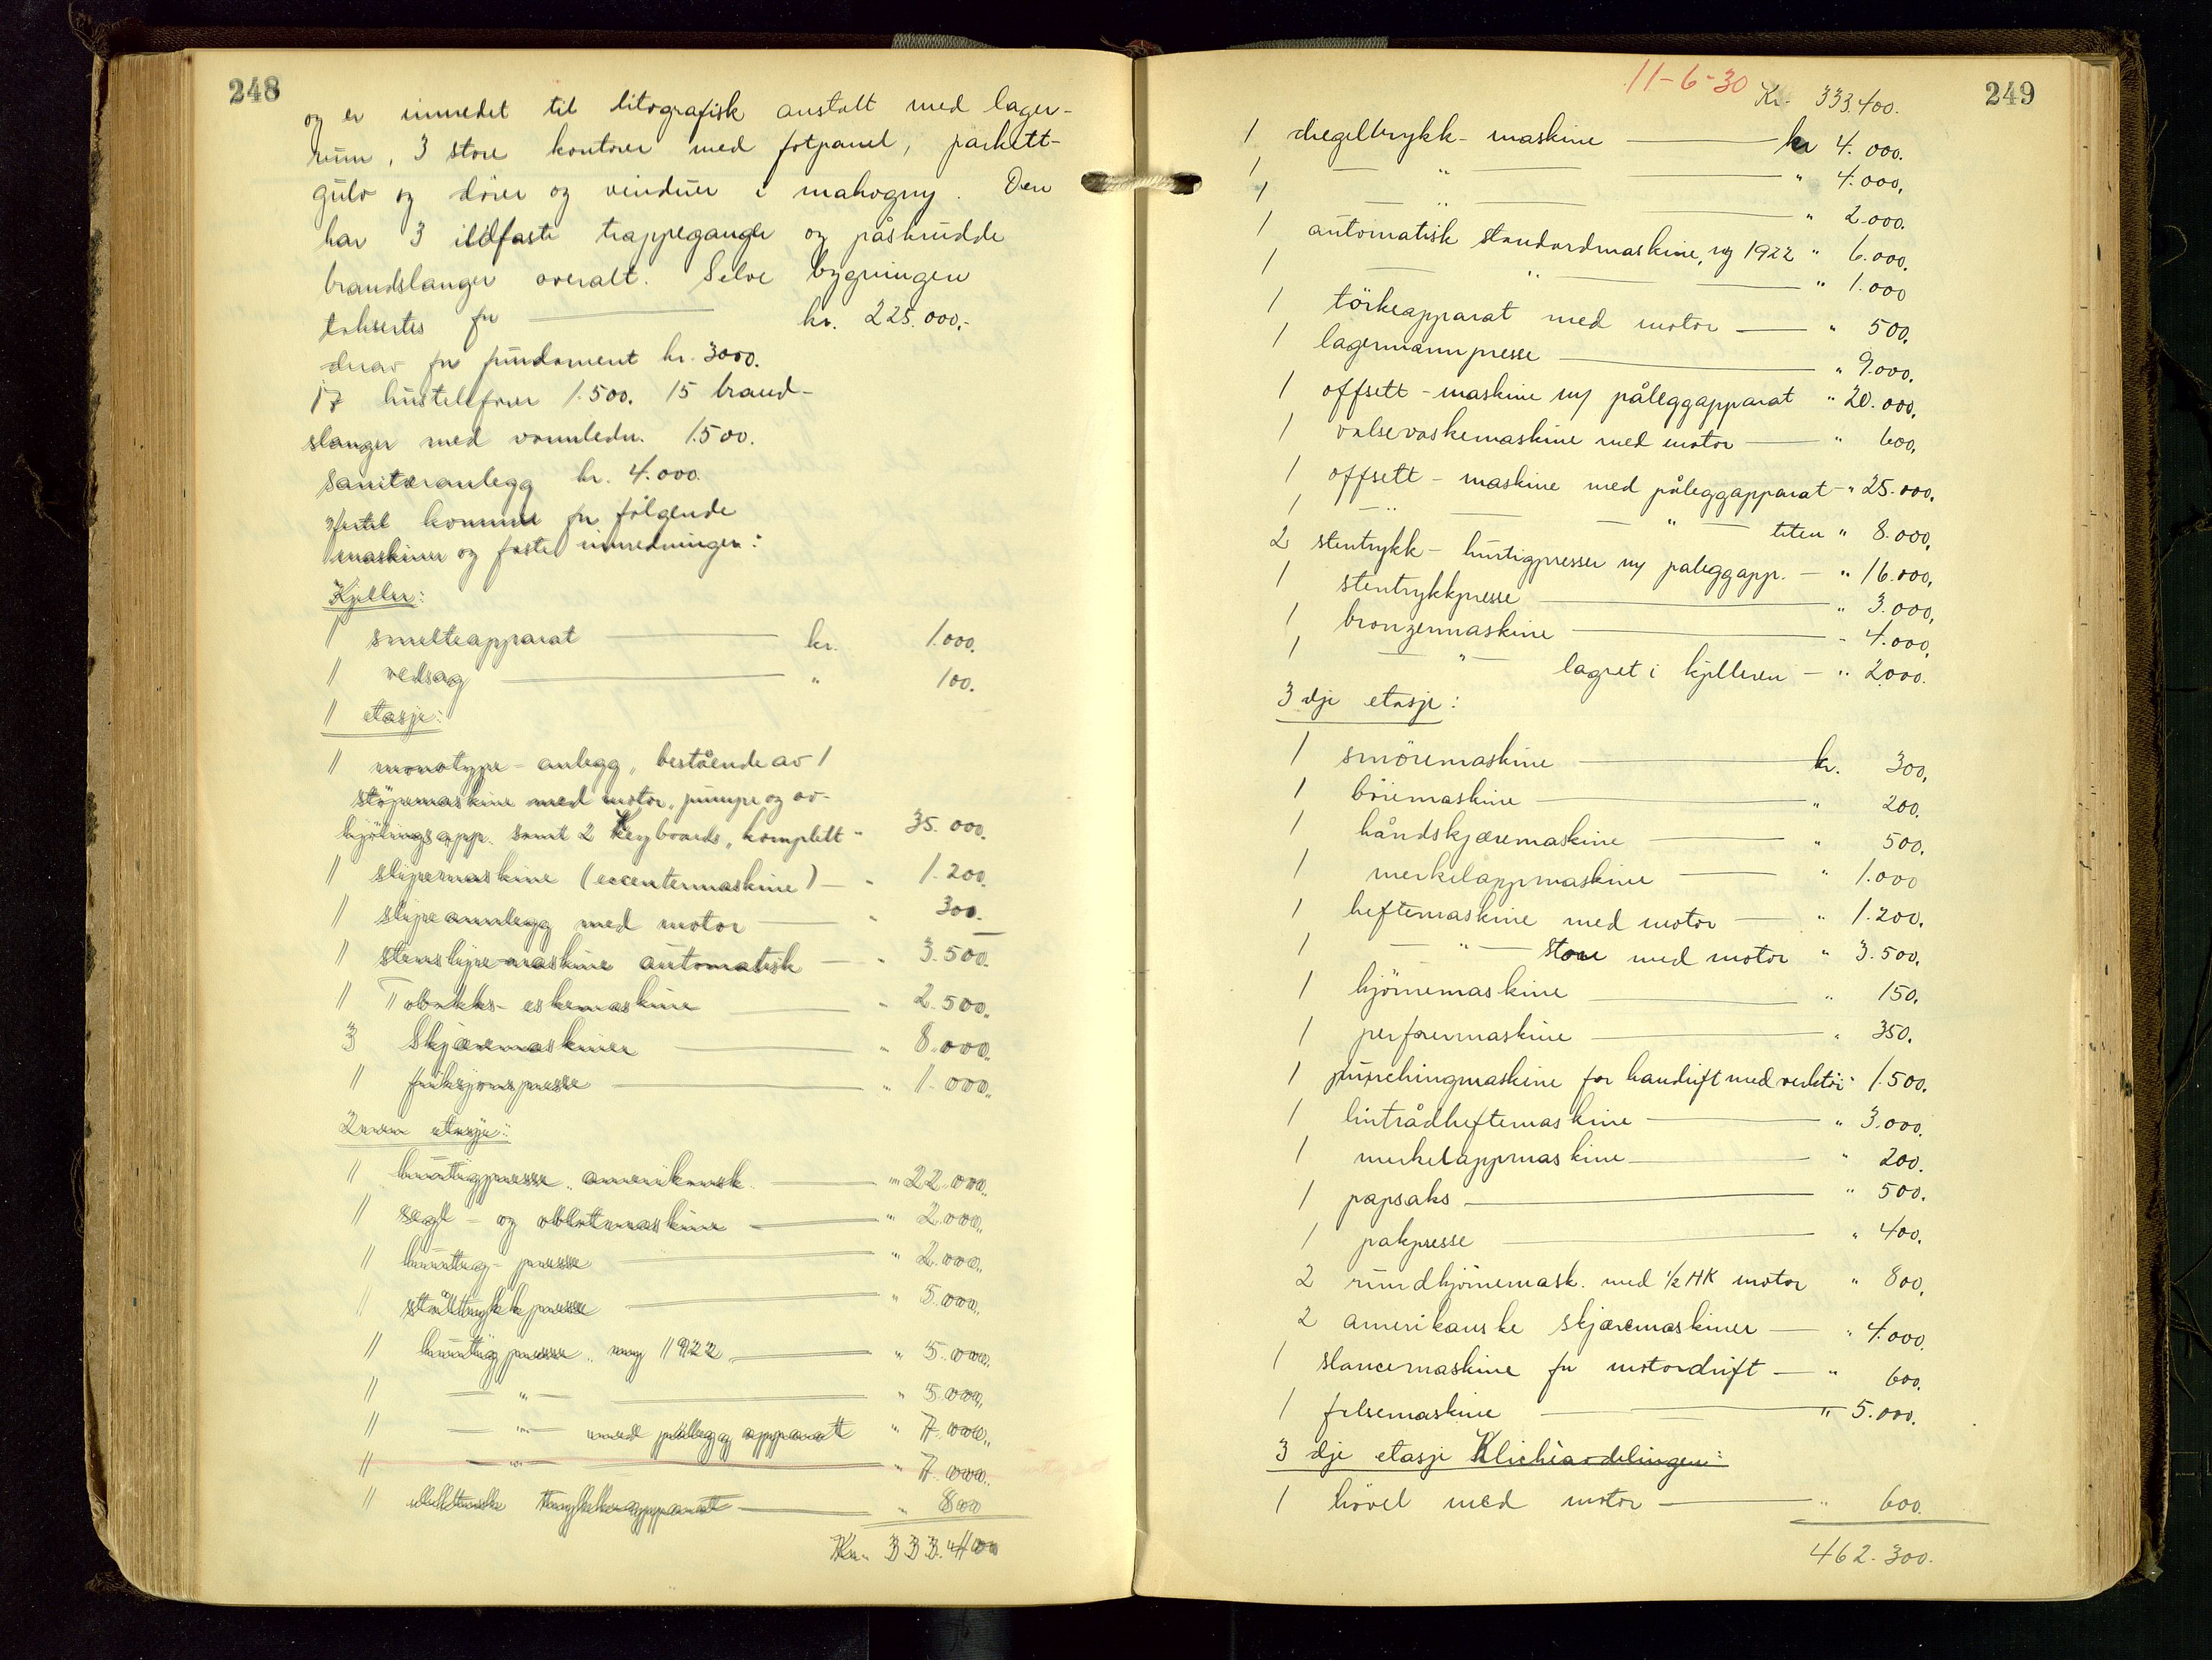 248
og er innredet til litografisk anstalt med lager-
rum, 3 store kontorer med fotpanel, parkett-
gulv og dører og vinduer i mahogny. Den
har 3 ildfaste trappegange og påskrudde
brandslanger overalt. Selve bygningen
takseres for kr. 225.000.-
derav for fundament kr. 3000.
17 hustelefoner 1.500. 15 brand-
slanger med vannledn. 1.500.
Sanitæranlegg kr. 4.000.
Hertil kommer for følgende
maskiner og faste innredninger:
Kjeller:
1 smelteapparat kr. 1.000.
1 vedsag " 100.
1 etasje:
1 monotype-anlegg, bestående av 1
støpemaskine med motor, pumpe og av-
kjølingsapp. samt 2 Keyboards, komplett " 35.000.
1 slipemaskine (eccentermaskine) — " 1.200.
1 slipeannlegg med motor — " 300.
1 stenslipe-maskine automatisk — " 3.500.
1 Tobakks-eskemaskine — " 2.500.
3 Skjæremaskiner — " 8.000.
1 friksjonspresse — " 1.000.
2nen etasje:
1 hurtigpresse, amerikansk — " 22.000.
1 segl- og oblatmaskine — " 2.000.
1 hurtig-presse — " 2.000.
1 ståltrykkpresse — " 5.000.
1 hurtigpresse, ny 1922 — " 5.000.
1 — " — " 5.000.
1 — " — med pålegg apparat " 7.000.
1 — " — " 7.000.
1 elektriske trykkerapparat — " 800
Kr. 333.400
11-6-30
249
Kr. 333.400.
1 diegeltrykk-maskine — kr 4.000.
1 — " — " 4.000.
1 — " — " 2.000.
1 automatisk standardmaskine, ny 1922 " 6.000.
1 — " — " 1.000
1 törkeapparat med motor — " 500.
1 lagermannpresse — " 9.000.
1 offsett-maskine m/ påleggapparat " 20.000.
1 valsevaskemaskine med motor — " 600.
1 offsett-maskine med påleggapparat - " 25.000.
1 — " — " — liten " 8.000.
2 stentrykk-hurtigpresser m/ paleggapp. — " 16.000.
1 stentrykkpresse — " 3.000.
1 bronzermaskine — " 4.000.
1 — " — lagret i kjelleren — " 2.000.
3dje etasje:
1 smöremaskine — kr. 300.
1 böiemaskine — " 200.
1 håndskjæremaskine — " 500.
1 merkelappmaskine — " 1.000
1 heftemaskine med motor — " 1.200.
1 — " — store med motor " 3.500.
1 hjörnemaskine — " 150.
1 perforermaskine — " 350.
1 punchingmaskine for handrift med verktöi " 1.500.
1 lintrådheftemaskine — " 3.000.
1 merkelappmaskine — " 200.
1 papsaks — " 500.
1 pakpresse — " 400.
2 rundhjörnemask. med ½ HK motor " 800.
2 amerikanske skjæremaskiner — " 4.000.
1 stancemaskine for motordrift — " 600.
1 felsemaskine — " 5.000.
3dje etasje Klichéavdelingen:
1 hövel med motor — " 600.
462.300.